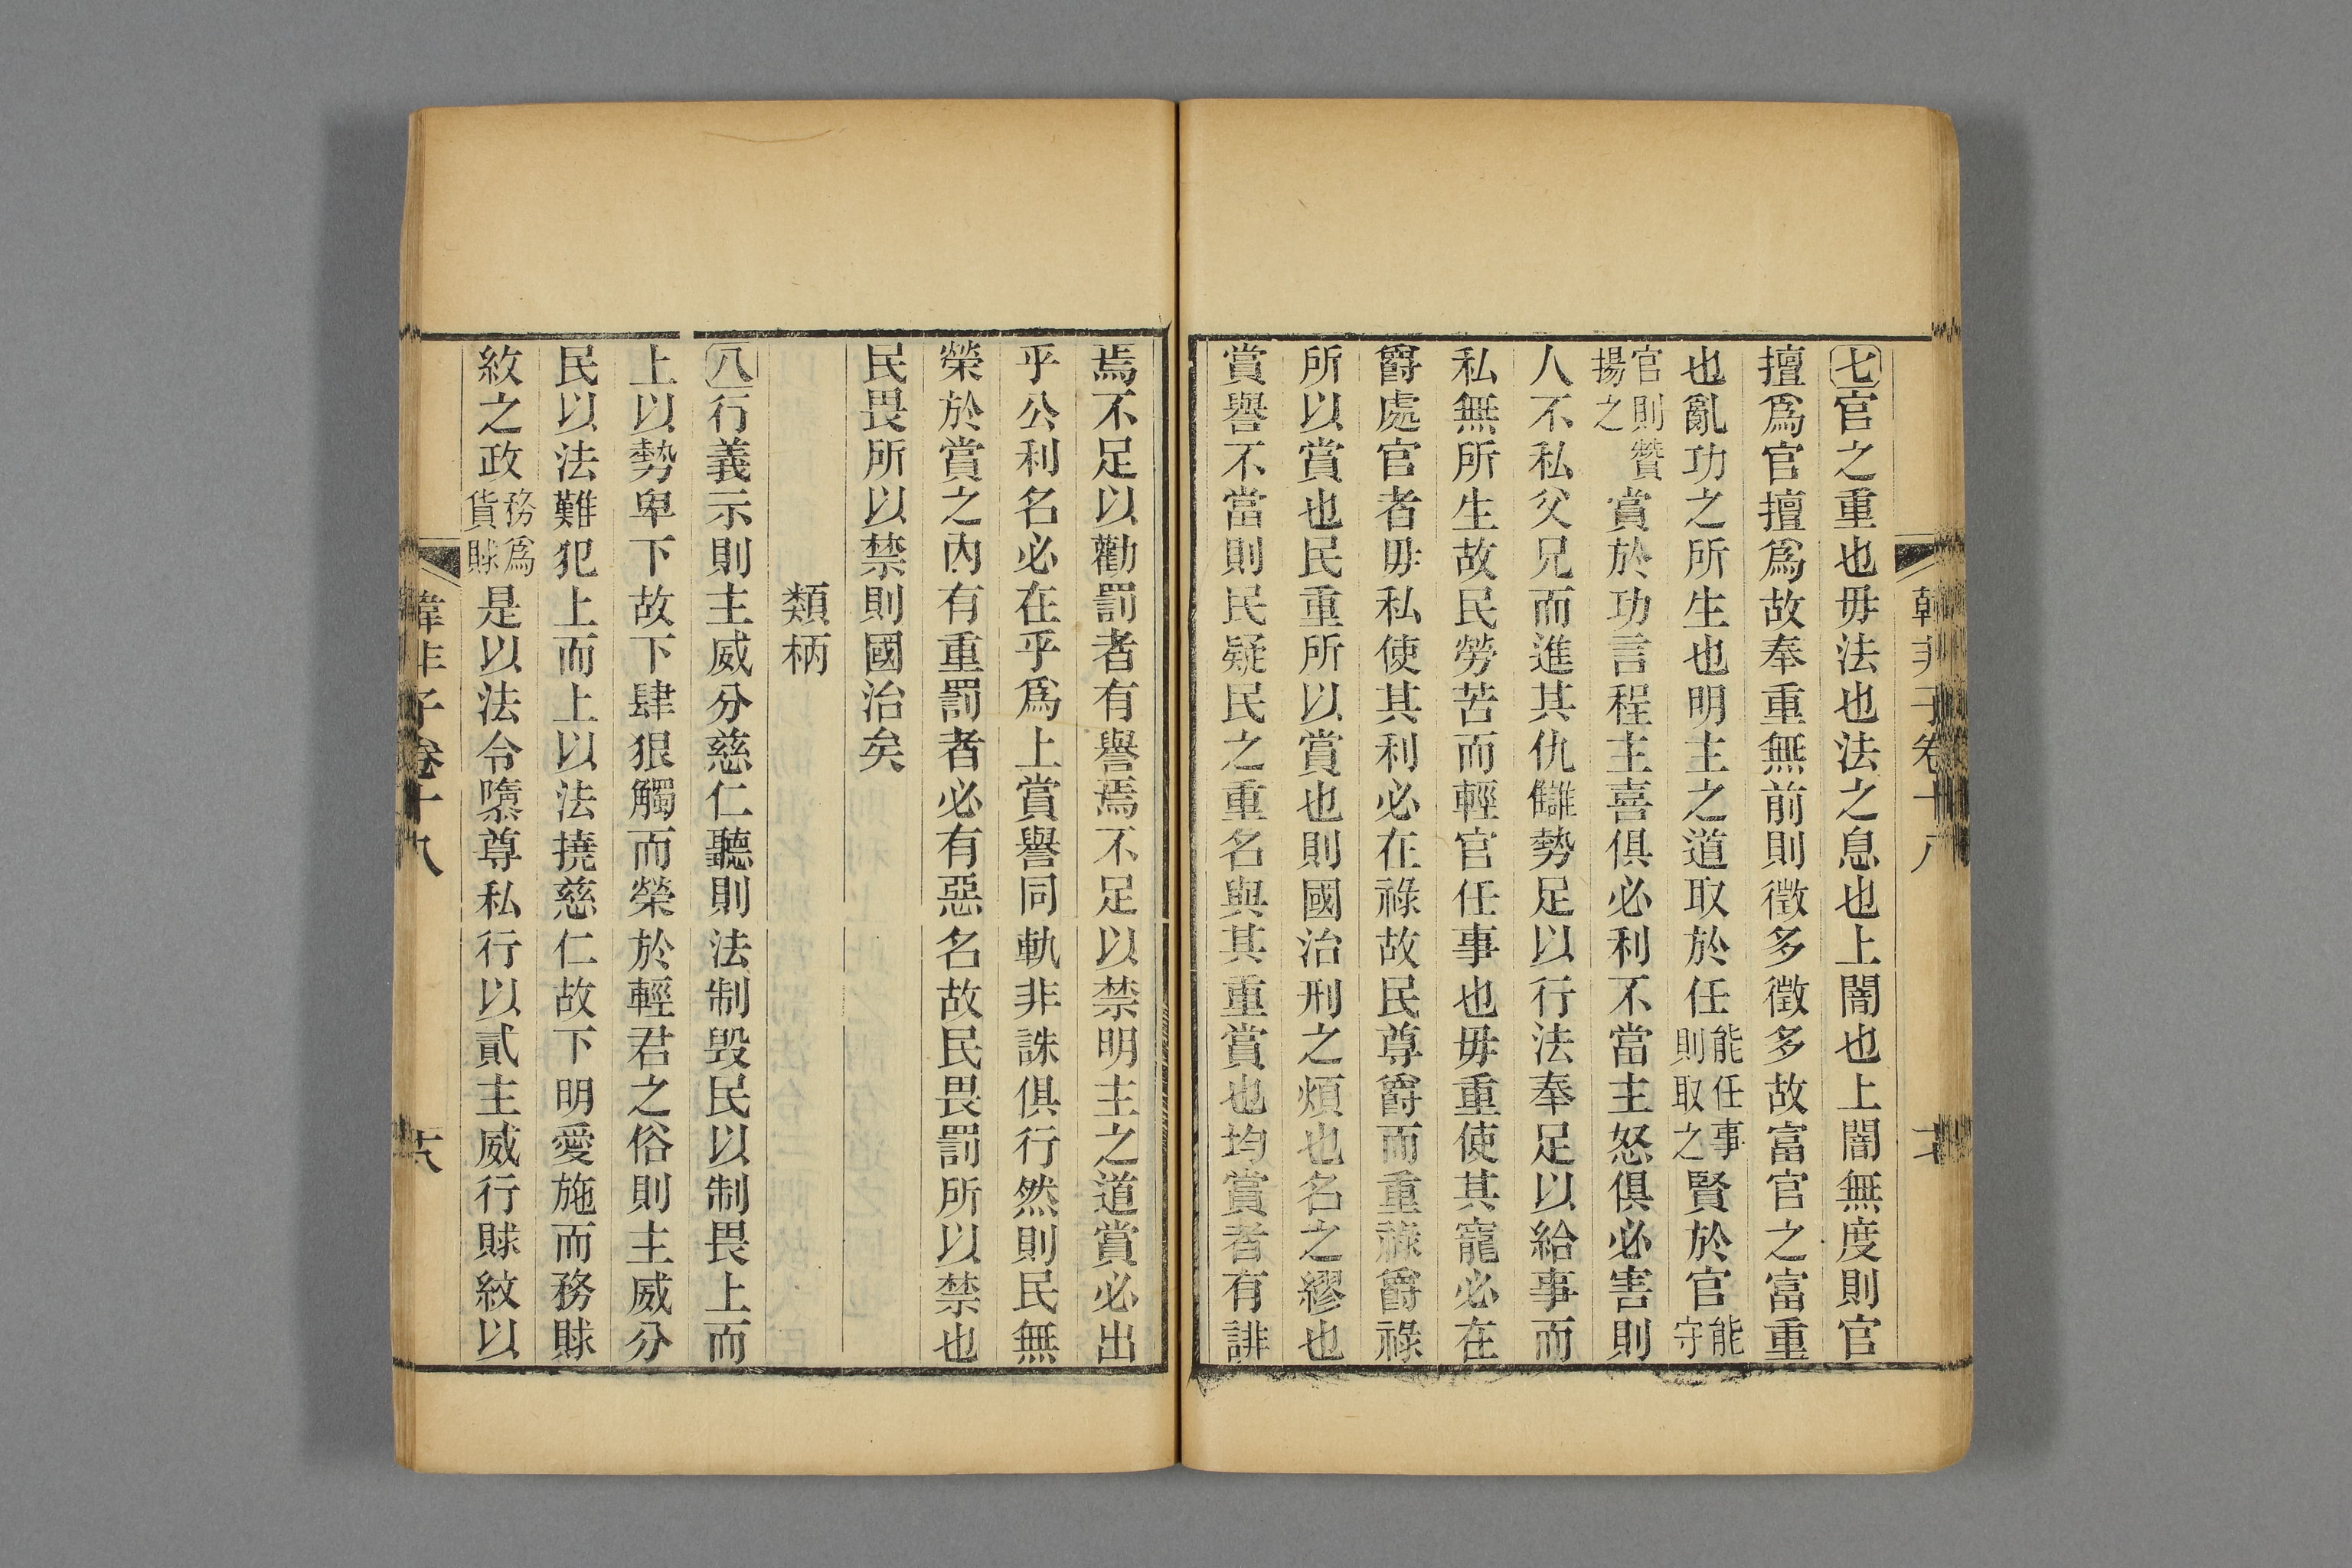 韓非子卷十八
七官之重也毋法也法之息也上闇也上闇無度則官
擅爲官擅爲故奉重無前則徵多徵多故富官之富重
也亂功之所生也明主之道取於任能任事則取之賢於官能守
官則贊揚之賞於功言程主喜俱必利不當主怒俱必害則
人不私父兄而進其仇讎勢足以行法奉足以給事而
私無所生故民勞苦而輕官任事也毋重使其寵必在
爵處官者毋私使其利必在祿故民尊爵而重祿爵祿
所以賞也民重所以賞也則國治刑之煩也名之繆也
賞譽不當則民疑民之重名與其重賞也均賞者有誹
焉不足以勸罰者有譽焉不足以禁明主之道賞必出
乎公利名必在乎爲上賞譽同軌非誅俱行然則民無
榮於賞之內有重罰者必有惡名故民畏罰所以禁也
民畏所以禁則國治矣
類柄
八行義示則主威分慈仁聽則法制毀民以制畏上而
上以勢卑下故下肆狠觸而榮於輕君之俗則主威分
民以法難犯上而上以法撓慈仁故下明愛施而務賕
紋之政務爲貨賕是以法令隳尊私行以貳主威行賕紋以
韓非子卷十八